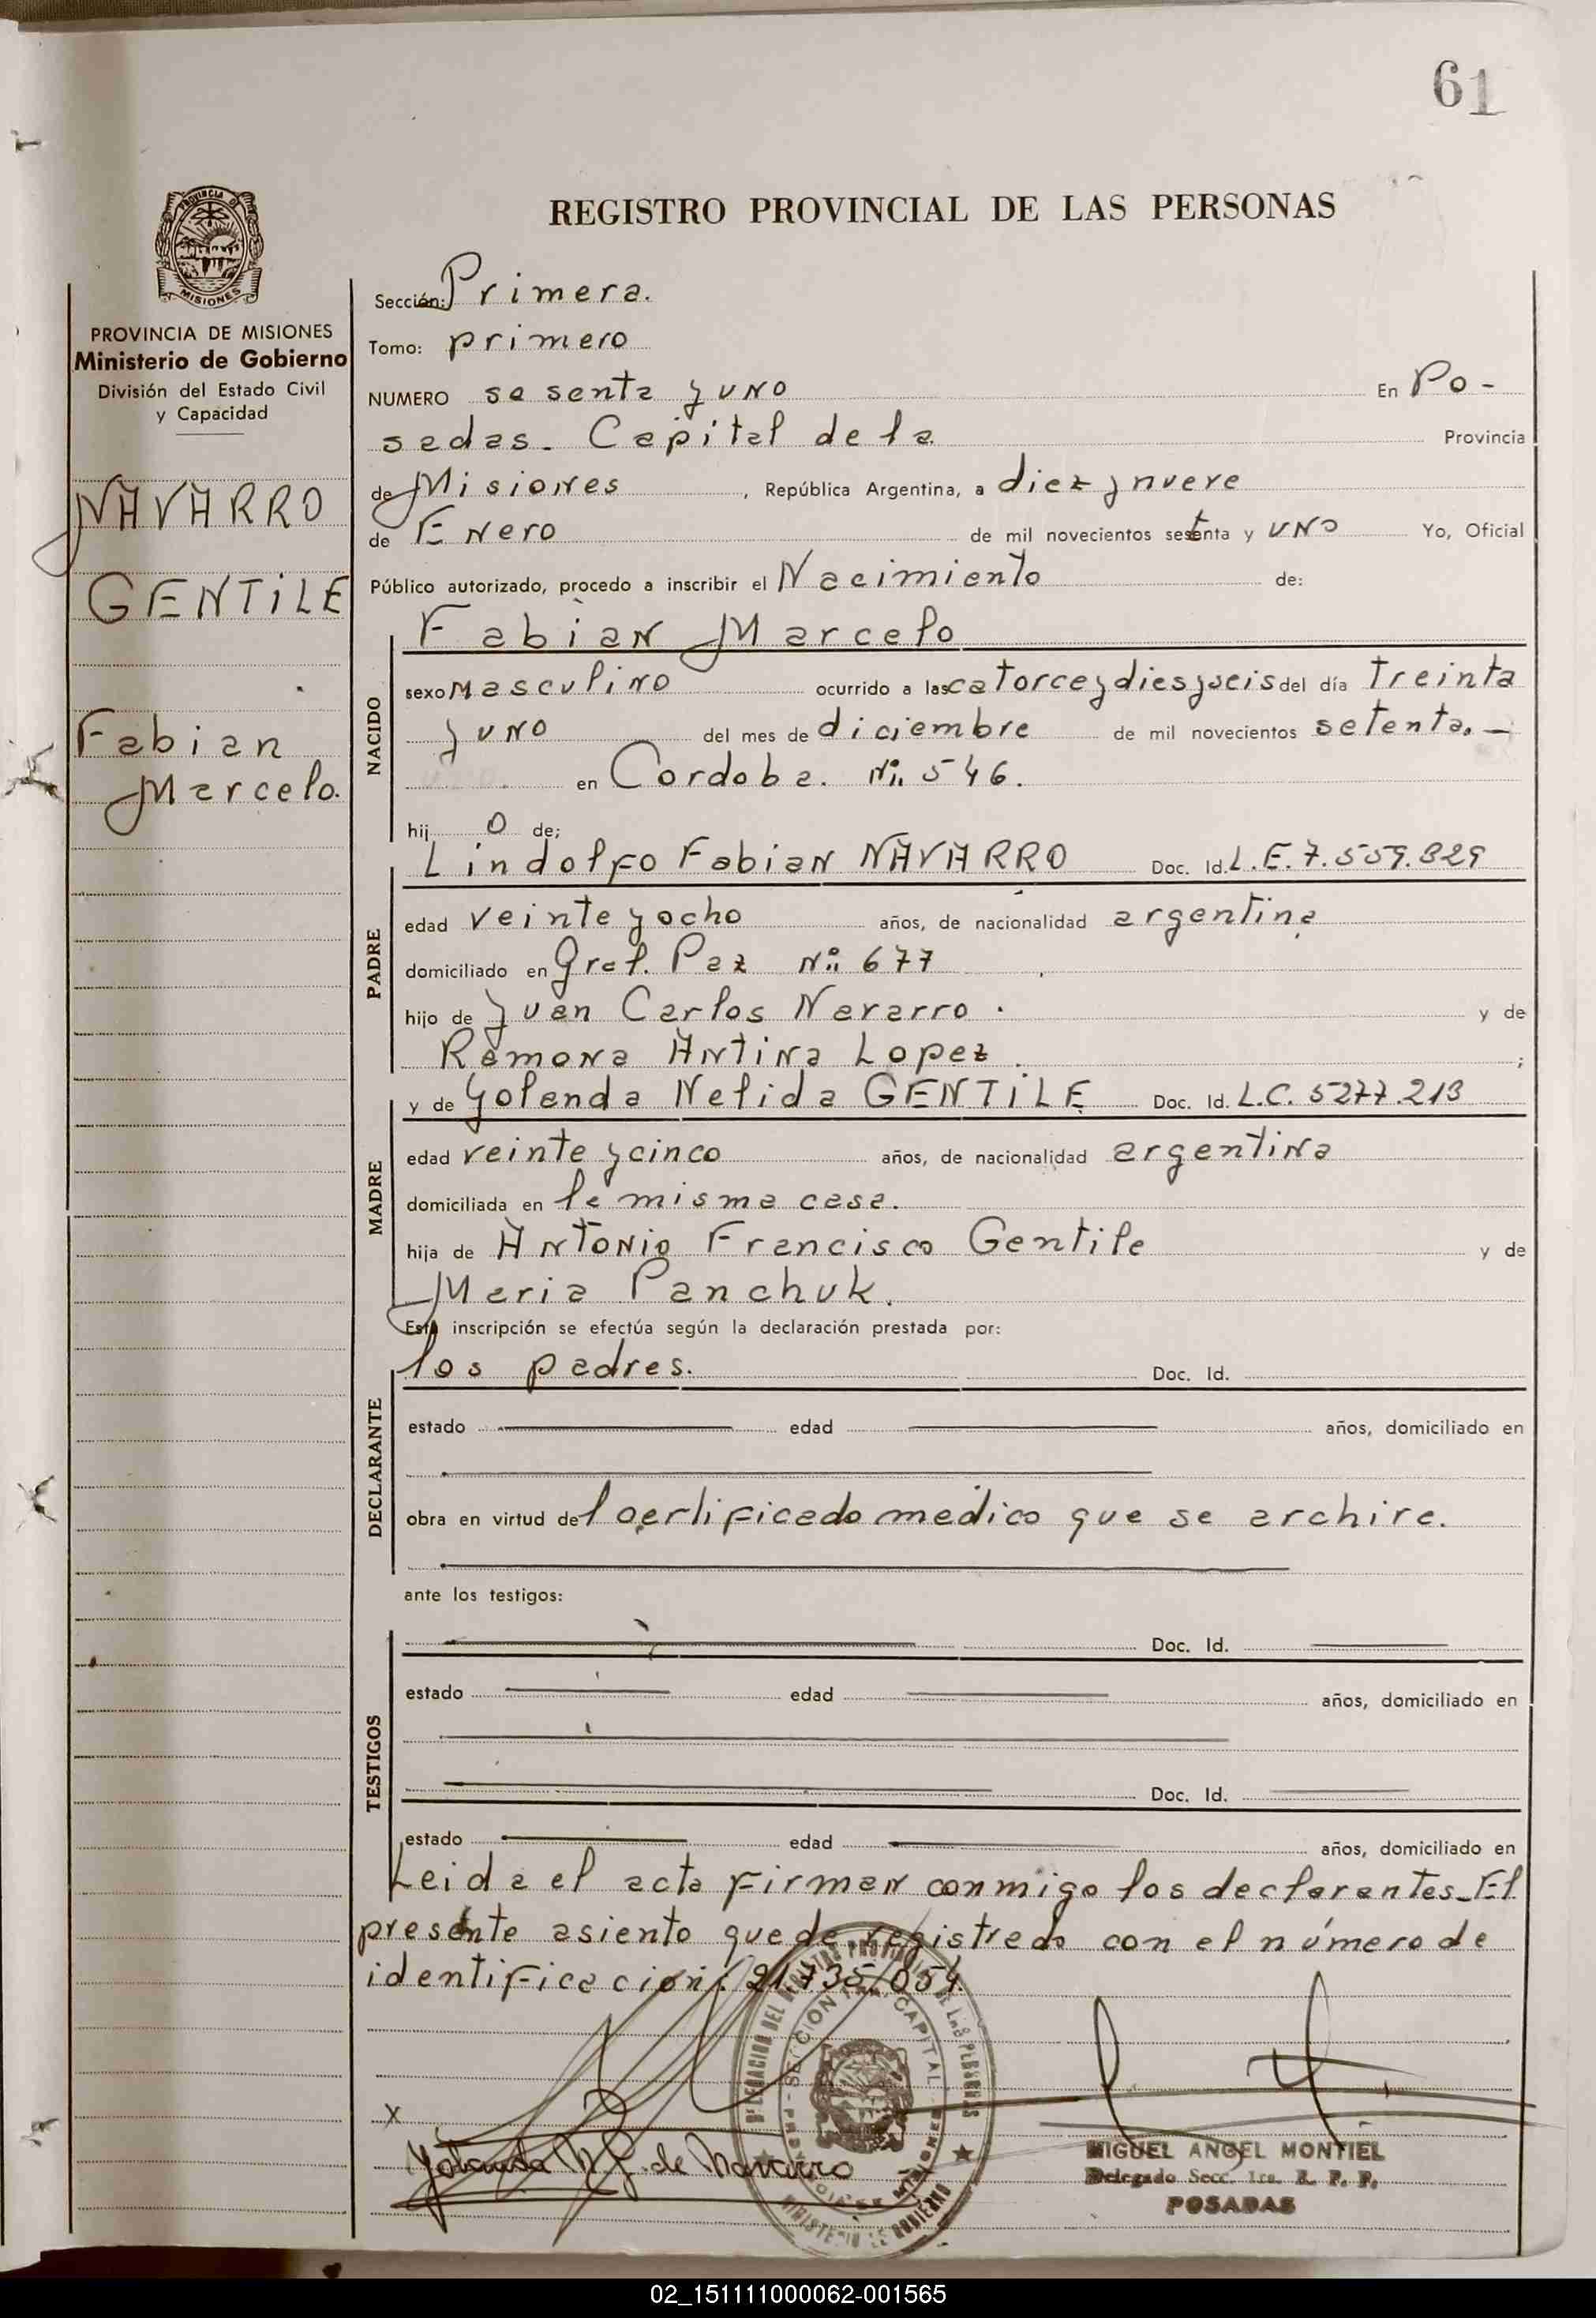 61
REGISTRO PROVINCIAL DE LAS PERSONAS
PROVINCIA
MISIONES
PROVINCIA DE MISIONES
Ministerio de Gobierno
División del Estado Civil
y Capacidad
NAVARRO
GENTiLE
Fabian
Marcelo.
Sección: Primera.
Tomo: primero
NUMERO sesenta y uno En Po-
sadas. Capital de la Provincia
de Misiones, República Argentina, a diez y nueve
de Enero de mil novecientos setenta y uno Yo, Oficial
Público autorizado, procedo a inscribir el Nacimiento de:
NACIDO
Fabian Marcelo
sexo masculino ocurrido a las catorce y dies y seis del día treinta
y uno del mes de diciembre de mil novecientos setenta. —
en Cordoba. Nº 546.
hij o de;
PADRE
Lindolfo Fabian NAVARRO Doc. Id. L.E. 7.559.829
edad veinte y ocho años, de nacionalidad argentina
domiciliado en Gral. Paz Nº 677
hijo de Juan Carlos Navarro. y de
Ramona Antina Lopez. ;
MADRE
y de Yolanda Nelida GENTiLE Doc. Id. L.C. 5277.213
edad veinte y cinco años, de nacionalidad argentina
domiciliada en la misma casa.
hija de Antonio Francisco Gentile y de
Maria Panchuk.
Esta inscripción se efectúa según la declaración prestada por:
DECLARANTE
los padres. Doc. Id.
estado edad años, domiciliado en
obra en virtud del certificado medico que se archiva.
ante los testigos:
TESTIGOS
Doc. Id.
estado edad años, domiciliado en
Doc. Id.
estado edad años, domiciliado en
Leida el acta firman conmigo los declarantes. El
presente asiento queda registrado con el número de
identificación: 21.735.054.
X
Yolanda N G. de Navarro
DELEGACION DEL REGISTRO PROVINCIAL DE LAS PERSONAS
SECCION 1ra. CAPITAL
MINISTERIO DE GOBIERNO
MIGUEL ANGEL MONTIEL
Delegado Secc. 1ra. R. P. P.
POSADAS
02_151111000062-001565